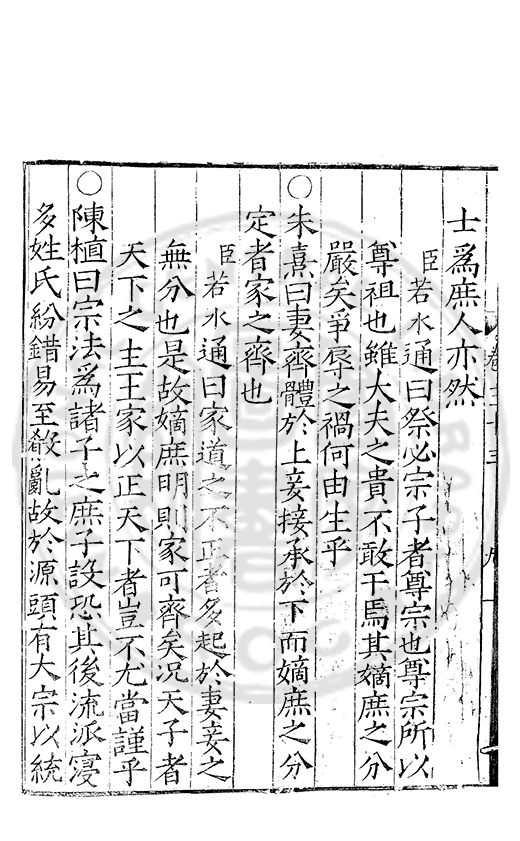 士爲庶人亦然
臣若水通曰祭必宗子者尊宗也尊宗所以
尊祖也雖大夫之貴不敢干焉其嫡庶之分
嚴矣爭辱之禍何由生乎
○朱熹曰妻齊體於上妾接承於下而嫡庶之分
定者家之齊也
臣若水通曰家道之不正者多起於妻妾之
無分也是故嫡庶明則家可齊矣况天子者
天下之主王家以正天下者豈不尤當謹乎
○陳植曰宗法爲諸子之庶子設恐其後流派寖
多姓氏紛錯易至殽亂故於源頭有大宗以統